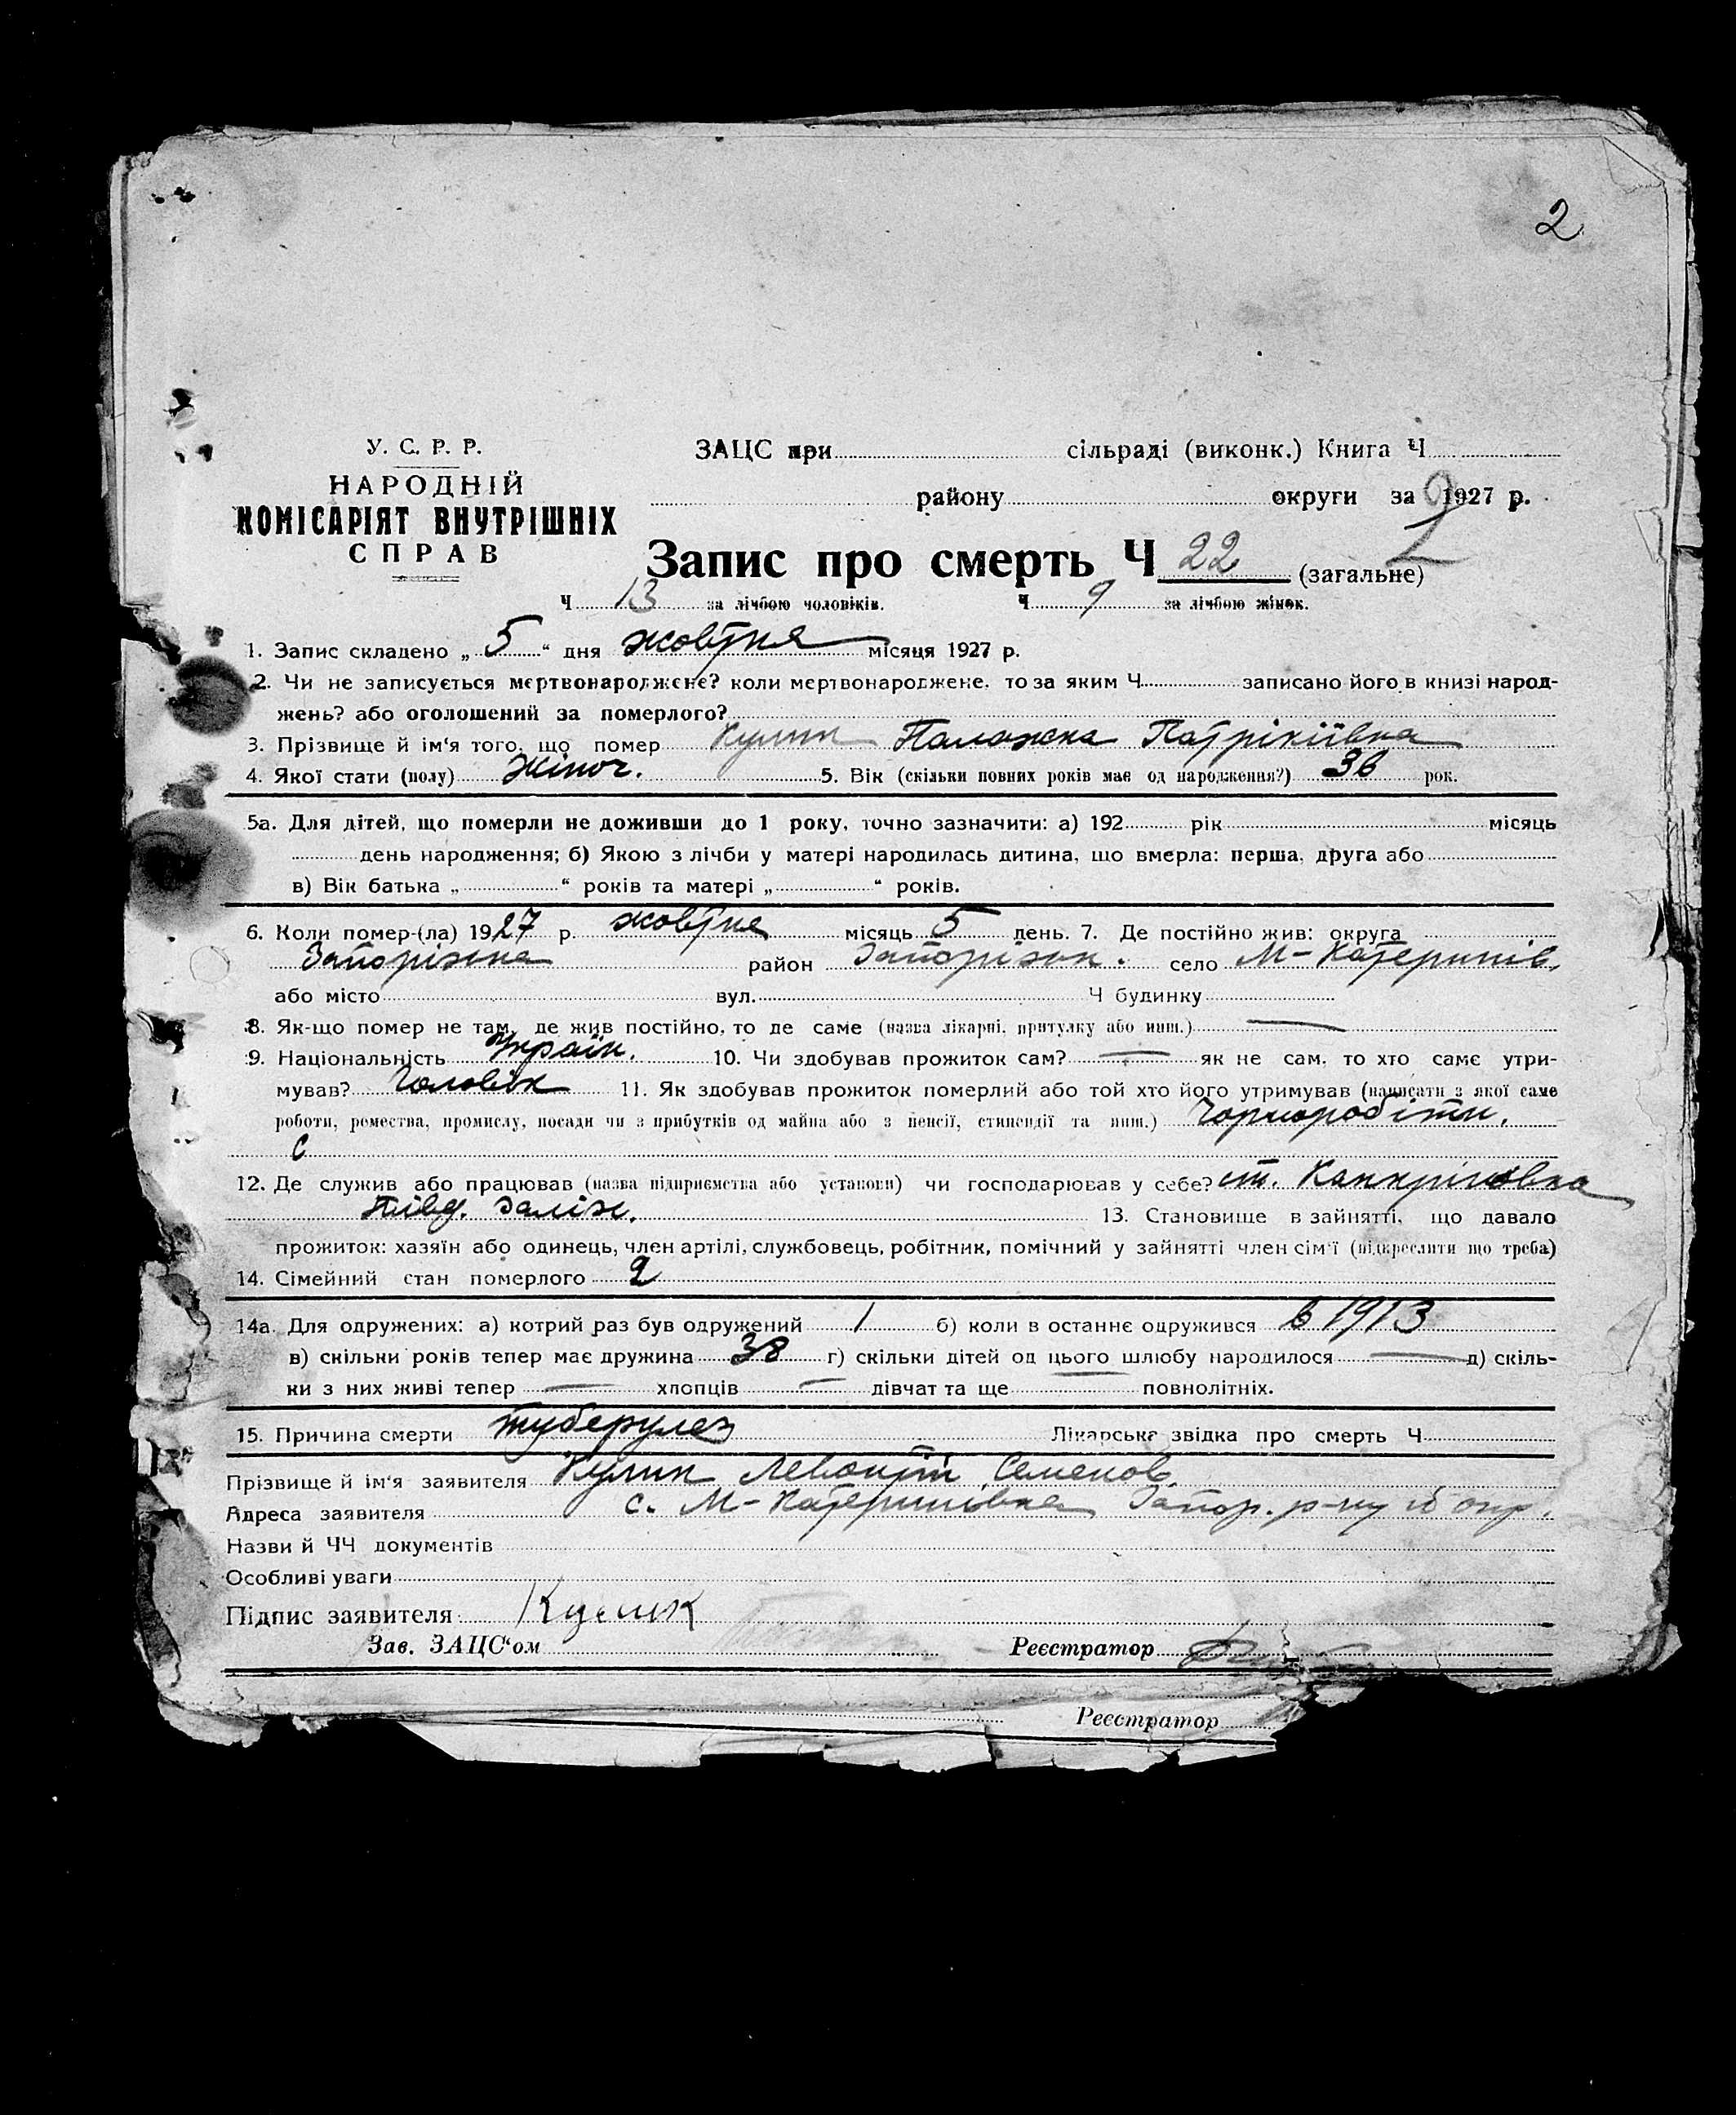 2
У. С. Р. Р.
НАРОДНІЙ
КОМІСАРІЯТ ВНУТРІШНІХ
СПРАВ
ЗАЦС при сільраді (виконк.) Книга Ч
району округи за 1927 р.
2
Запис про смерть Ч 22 (загальне)
Ч 13 за лічбою чоловіків. Ч 9 за лічбою жінок.
1. Запис складено „ 5 “ дня жовтня місяця 1927 р.
2. Чи не записується мертвонароджене? коли мертвонароджене, то за яким Ч записано його в книзі народ-
жень? або оголошений за померлого?
3. Прізвище й ім'я того, що помер Кулик Паложка Патрікіївна
4. Якої стати (полу) Жіноч. 5. Вік (скільки повних років має од народження?) 36 рок.
5а. Для дітей, що померли не доживши до 1 року, точно зазначити: а) 192 рік місяць
день народження; б) Якою з лічби у матері народилась дитина, що вмерла: перша, друга або
в) Вік батька „ “ років та матері „ “ років.
6. Коли помер-(ла) 1927 р. жовтня місяць 5 день. 7. Де постійно жив: округа
Запорізька район Запорізьк. село М-Катеринів.
або місто вул. Ч будинку
8. Як-що помер не там, де жив постійно, то де саме (назва лікарні, притулку або инш.) —
9. Національність Україн. 10. Чи здобував прожиток сам? — як не сам, то хто саме утри-
мував? Чоловік 11. Як здобував прожиток померлий або той хто його утримував (написати з якої саме
роботи, ремества, промислу, посади чи з прибутків од майна або з пенсії, стипендії та инш.) Чорноробітн.
С
12. Де служив або працював (назва підприємства або установи) чи господарював у себе? ст. Канкріновка
Півд. заліз. 13. Становище в зайнятті, що давало
прожиток: хазяїн або одинець, член артілі, службовець, робітник, помічний у зайнятті член сім'ї (підкреслити що треба)
14. Сімейний стан померлого 2
14а. Для одружених: а) котрий раз був одружений 1 б) коли в останнє одружився в 1913
в) скільки років тепер має дружина 38 г) скільки дітей од цього шлюбу народилося — д) скіль-
ки з них живі тепер — хлопців — дівчат та ще — повнолітніх.
15. Причина смерти туберулез Лікарська звідка про смерть Ч
Прізвище й ім'я заявителя Кулик Левонтій Семенов.
Адреса заявителя с. М-Катеринівка Запор. р-ну й окр.
Назви й ЧЧ документів
Особливі уваги
Підпис заявителя Кулик
Зав. ЗАЦС'ом Реєстратор
Реєстратор